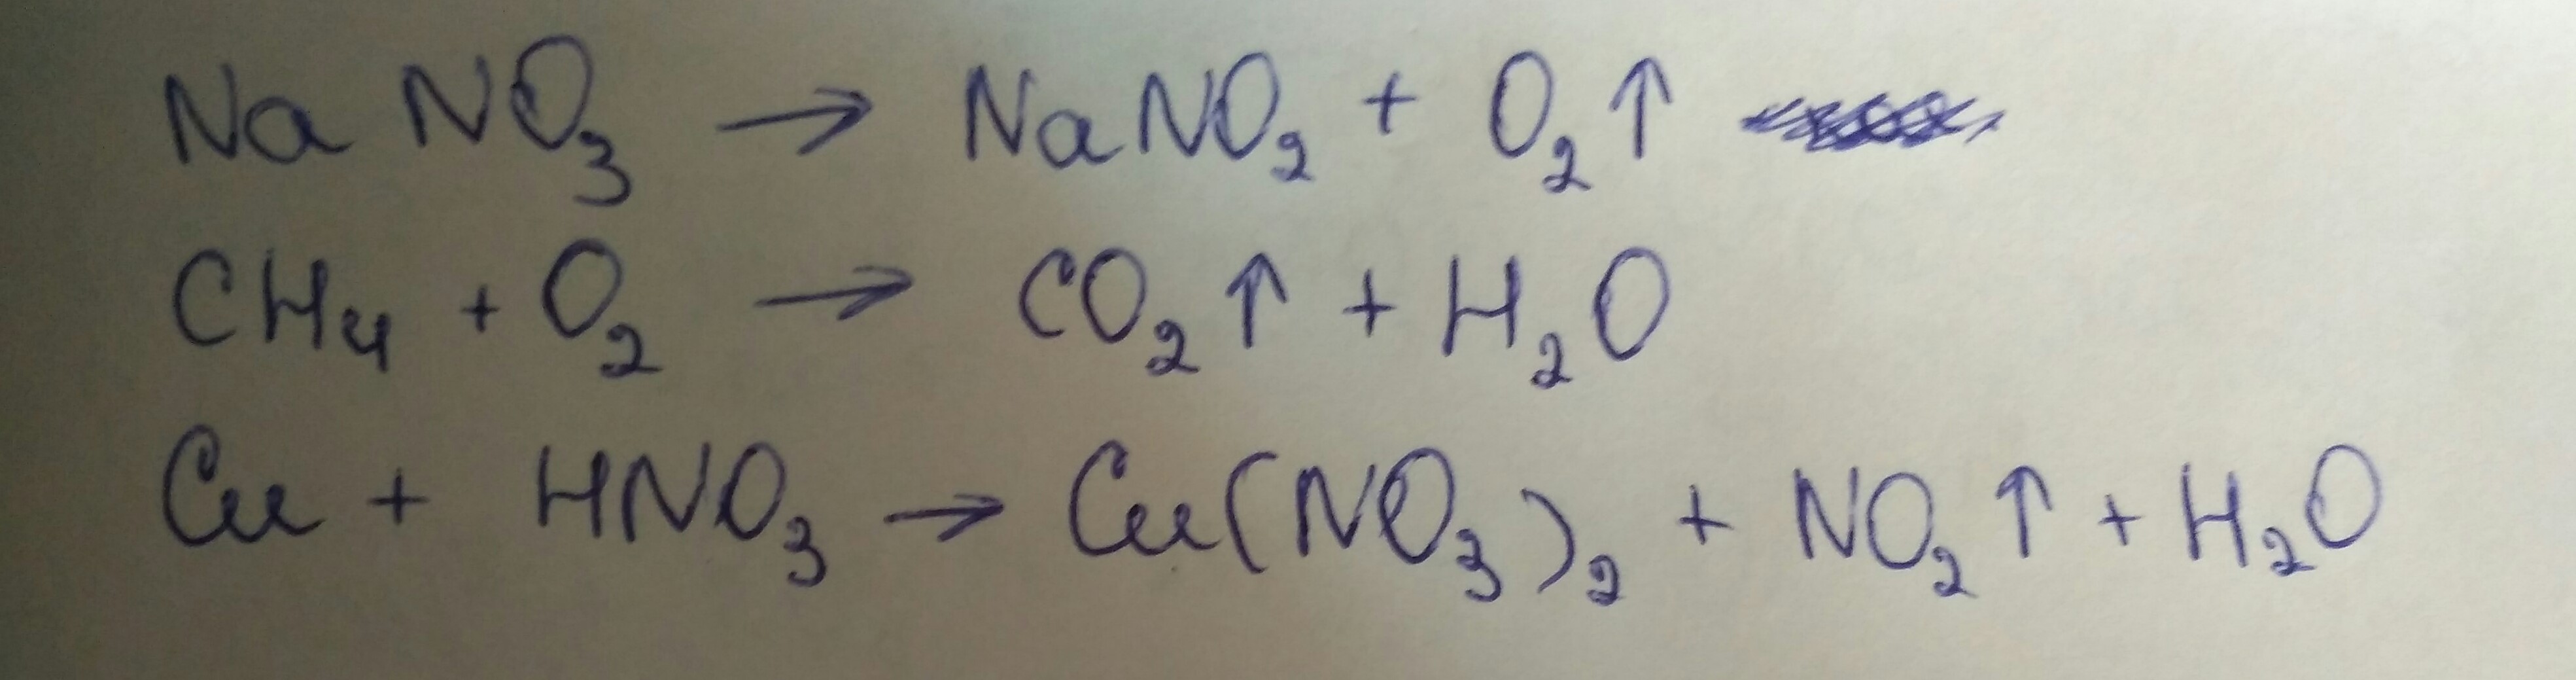 NaNO₃ → NaNO₂ + O₂↑
CH₄ + O₂ → CO₂↑ + H₂O
Cu + HNO₃ → Cu(NO₃)₂ + NO₂↑ + H₂O